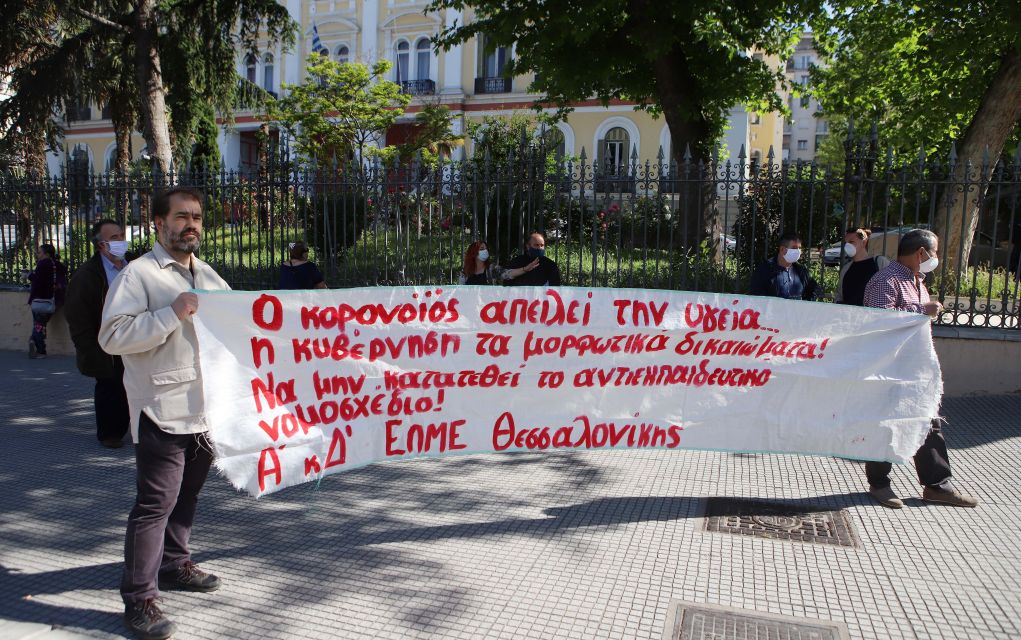 Ο κορονοϊός απειλεί την υγεία...
η κυβέρνηση τα μορφωτικά δικαιώματα!
Να μην κατατεθεί το αντιεκπαιδευτικό
νομοσχέδιο!
Α' κ Δ' ΕΛΜΕ Θεσσαλονίκης